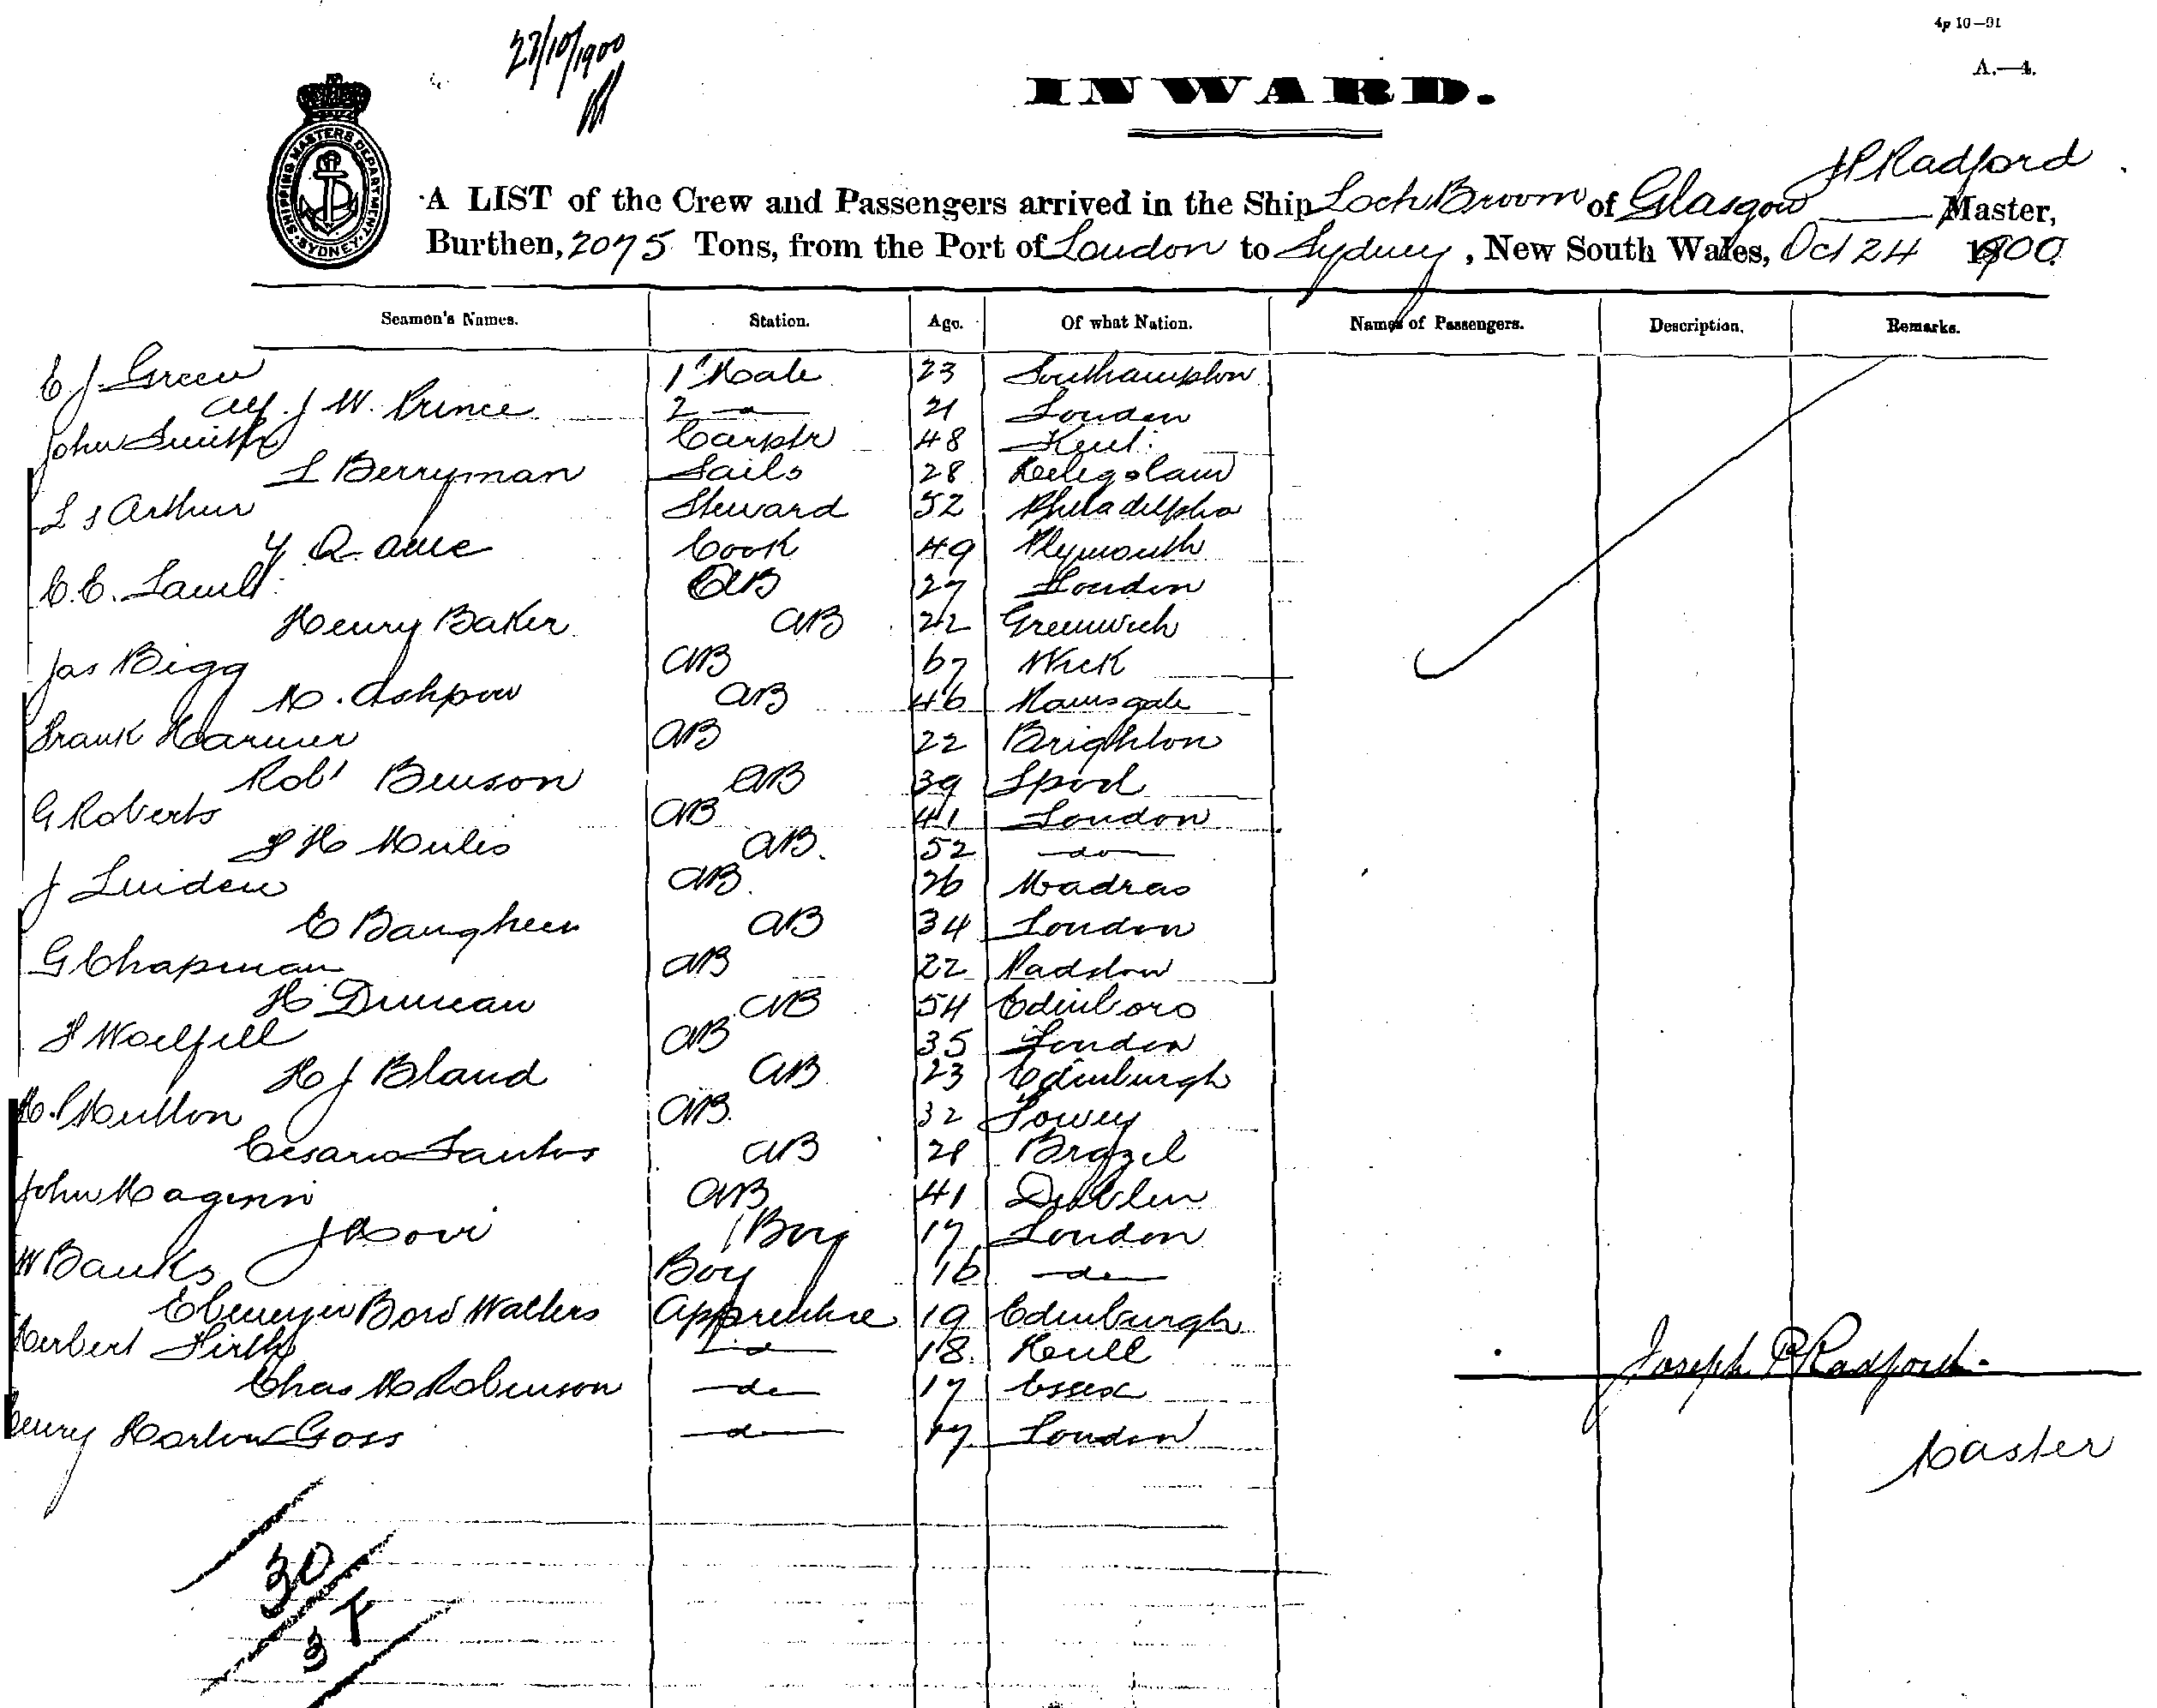 4p 10—91
A.—4.
27/10/1900
INWARD.
SHIPPING MASTERS DEPARTMENT SYDNEY
J P Radford
A LIST of the Crew and Passengers arrived in the Ship Loch Broom of Glasgow Master,
Burthen, 2075 Tons, from the Port of London to Sydney, New South Wales, Oct 24 1900
Seamen's Names. Station. Age. Of what Nation. Names of Passengers. Description. Remarks.
E J Green 1st Mate 23 Southampton
Alf. J W. Prince 2 do 21 London
John Smith Carptr 48 Kent
L Berryman Sails 28 
L S Arthur Steward 52 Philadelphia
Cook 49 Plymouth
C.E. AB 27 London
Henry Baker AB 22 Greenwich
Jas Bigg AB 67 Wick
AB 46 Ramsgate
Frank Harmer AB 22 Brighton
Robt Benson AB 39 Lpool
G Roberts AB 41 London
AB. 52 do
J AB. 26 Madras
AB 34 London
G Chapman AB 22 Padstow
H Duncan AB 54 Edinboro
AB 35 London
H J Bland AB 23 Edinburgh
AB. 32 Fowey
Cesario Santos AB 28 Brazil
John Maginn AB 41 Dublin
Boy 17 London
W Banks Boy 16 do
Ebenezer Boyd Walters Apprentice 19 Edinburgh
Herbert Firth do 18 Hull
Chas H Robinson do 17 Essex
Henry Goss do 17 London
Joseph P Radford
Master
30
3